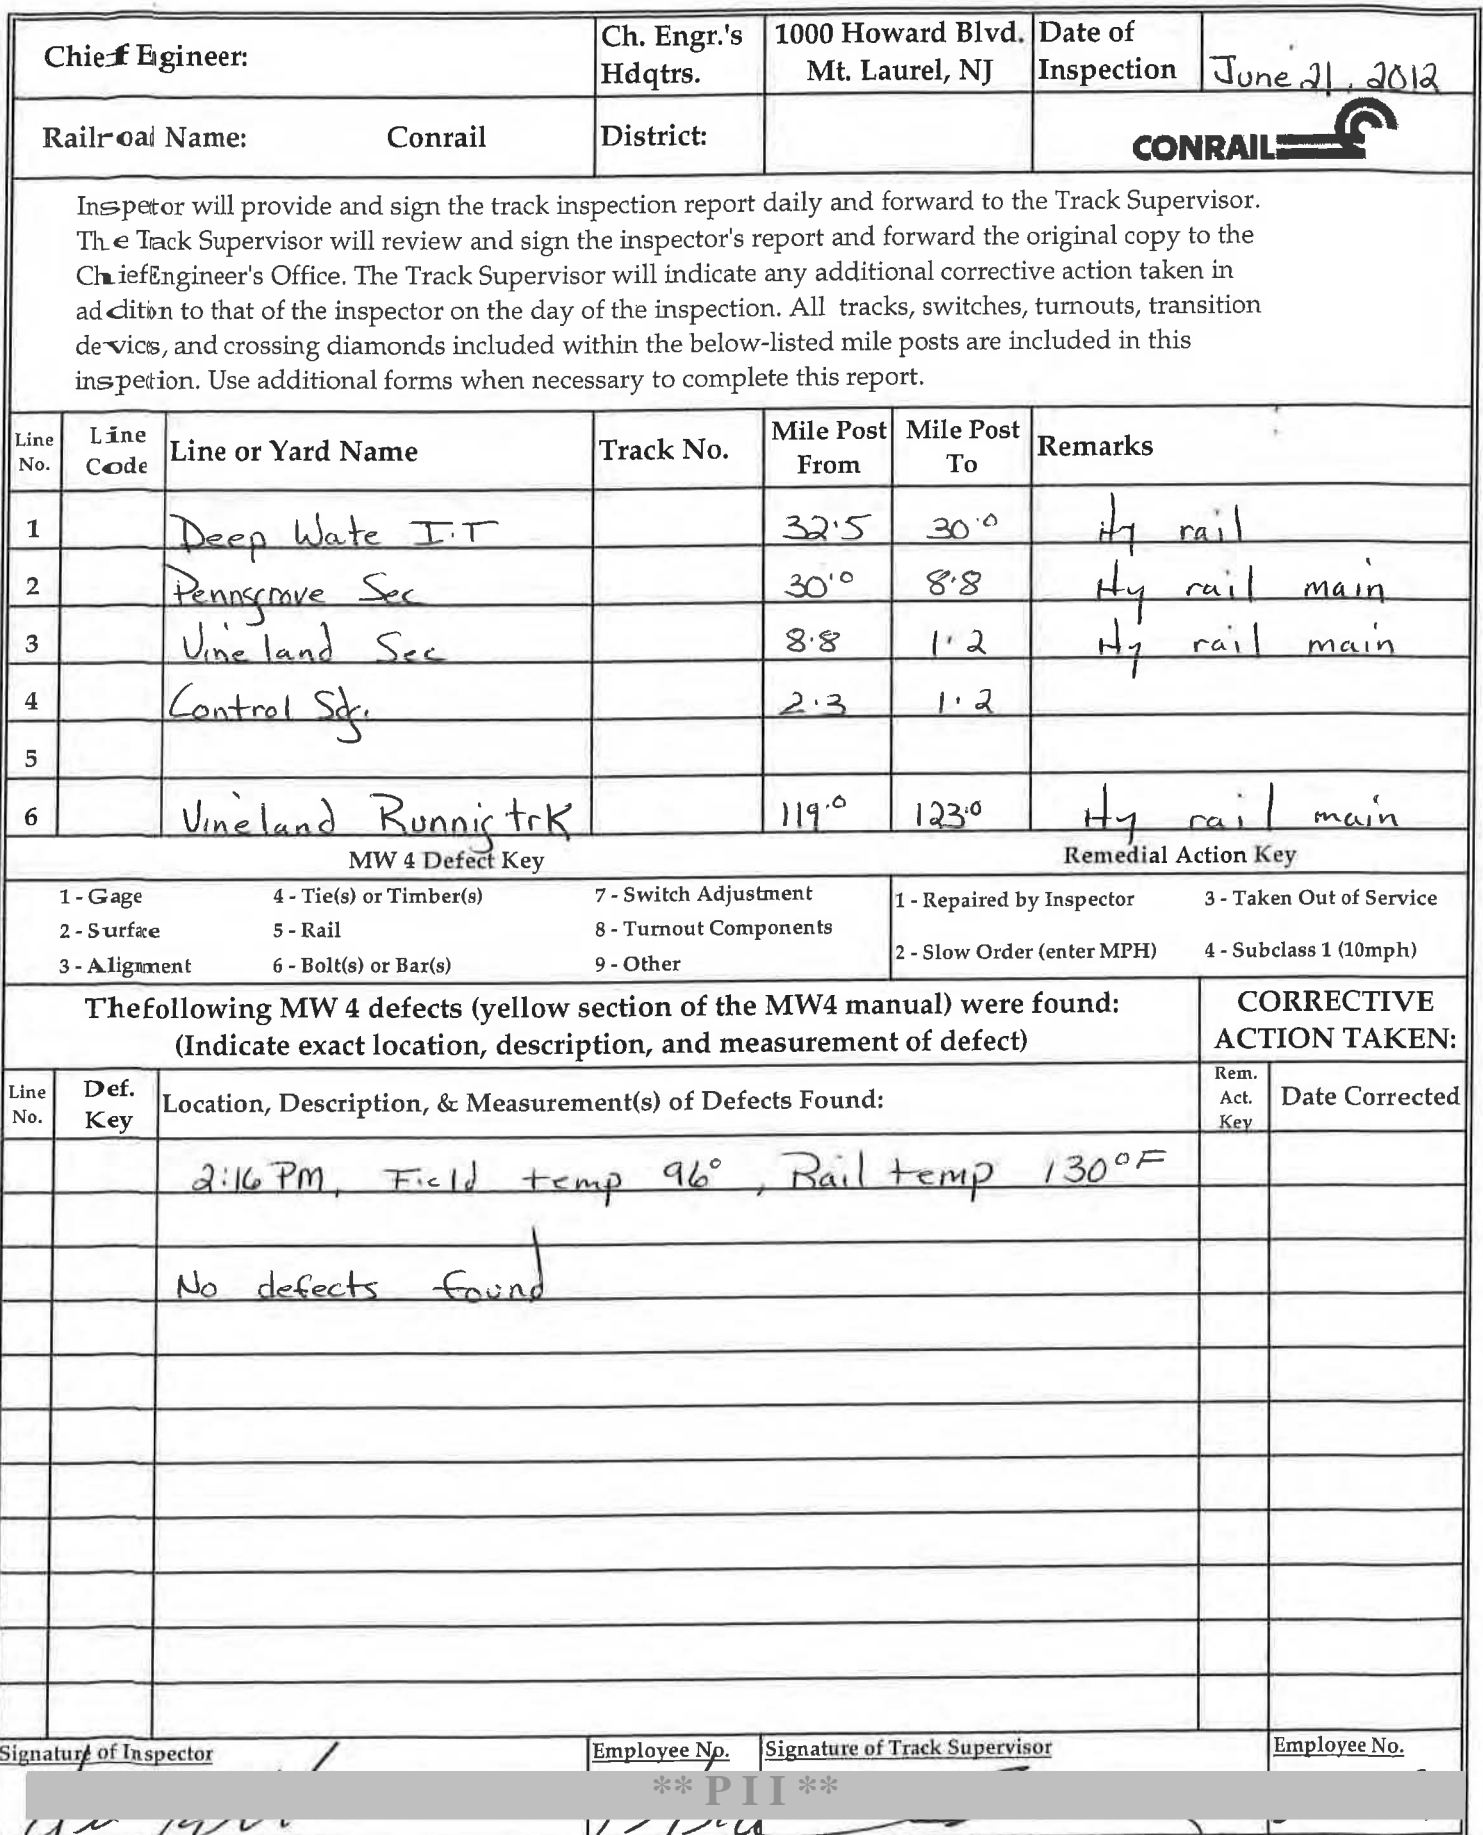 Chief Egineer:
Ch. Engr.'s Hdqtrs.
1000 Howard Blvd. Mt. Laurel, NJ
Date of Inspection
June 21, 2012
Railroad Name: Conrail
District:
CONRAIL
Inspector will provide and sign the track inspection report daily and forward to the Track Supervisor.
The Tack Supervisor will review and sign the inspector's report and forward the original copy to the
Chief Engineer's Office. The Track Supervisor will indicate any additional corrective action taken in
addition to that of the inspector on the day of the inspection. All tracks, switches, turnouts, transition
devices, and crossing diamonds included within the below-listed mile posts are included in this
inspection. Use additional forms when necessary to complete this report.
Line No. Line Code Line or Yard Name Track No. Mile Post From Mile Post To Remarks
1 Deep Wate I.T 32.5 30.0 Hy rail
2 Pennsgrove Sec 30.0 8.8 Hy rail main
3 Vineland Sec 8.8 1.2 Hy rail main
4 Control Sdg. 2.3 1.2
5
6 Vineland Runnig trk 119.0 123.0 Hy rail main
MW 4 Defect Key Remedial Action Key
1 - Gage 4 - Tie(s) or Timber(s) 7 - Switch Adjustment 1 - Repaired by Inspector 3 - Taken Out of Service
2 - Surface 5 - Rail 8 - Turnout Components
2 - Slow Order (enter MPH) 4 - Subclass 1 (10mph)
3 - Alignment 6 - Bolt(s) or Bar(s) 9 - Other
The following MW 4 defects (yellow section of the MW4 manual) were found:
(Indicate exact location, description, and measurement of defect)
CORRECTIVE
ACTION TAKEN:
Line No. Def. Key Location, Description, & Measurement(s) of Defects Found: Rem. Act. Key Date Corrected
2:16 PM, Field temp 96°, Rail temp 130°F
No defects found
Signature of Inspector Employee No. Signature of Track Supervisor Employee No.
** P I I **